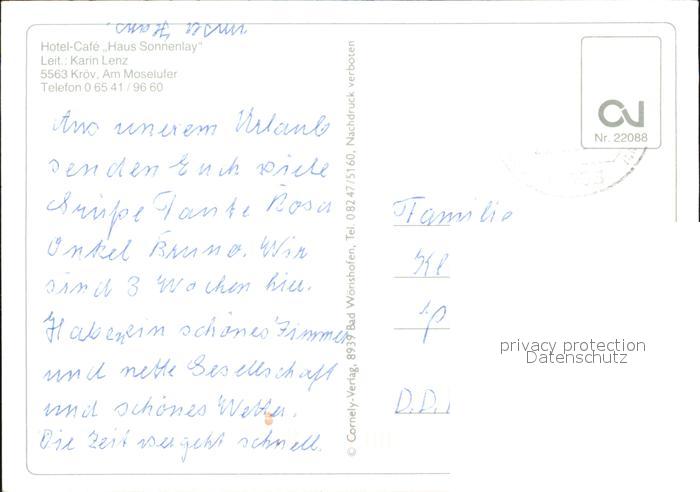 unser Haus.
Hotel-Café „Haus Sonnenlay"
Leit.: Karin Lenz
5563 Kröv, Am Moselufer
Telefon 0 65 41 / 96 60
Aus unerem Urlaub
senden Euch viele
Grüße Tante Rosa
Onkel Bruno. Wir
sind 3 Wochen hier.
Haben ein schönes Zimmer
und nette Gesellschaft
und schönes Wetter.
Die Zeit vergeht schnell.
© Cornely-Verlag, 8939 Bad Wörishofen, Tel. 0 82 47/51 60, Nachdruck verboten
CV
Nr. 22088
Familie
Kl
D.D.
privacy protection
Datenschutz